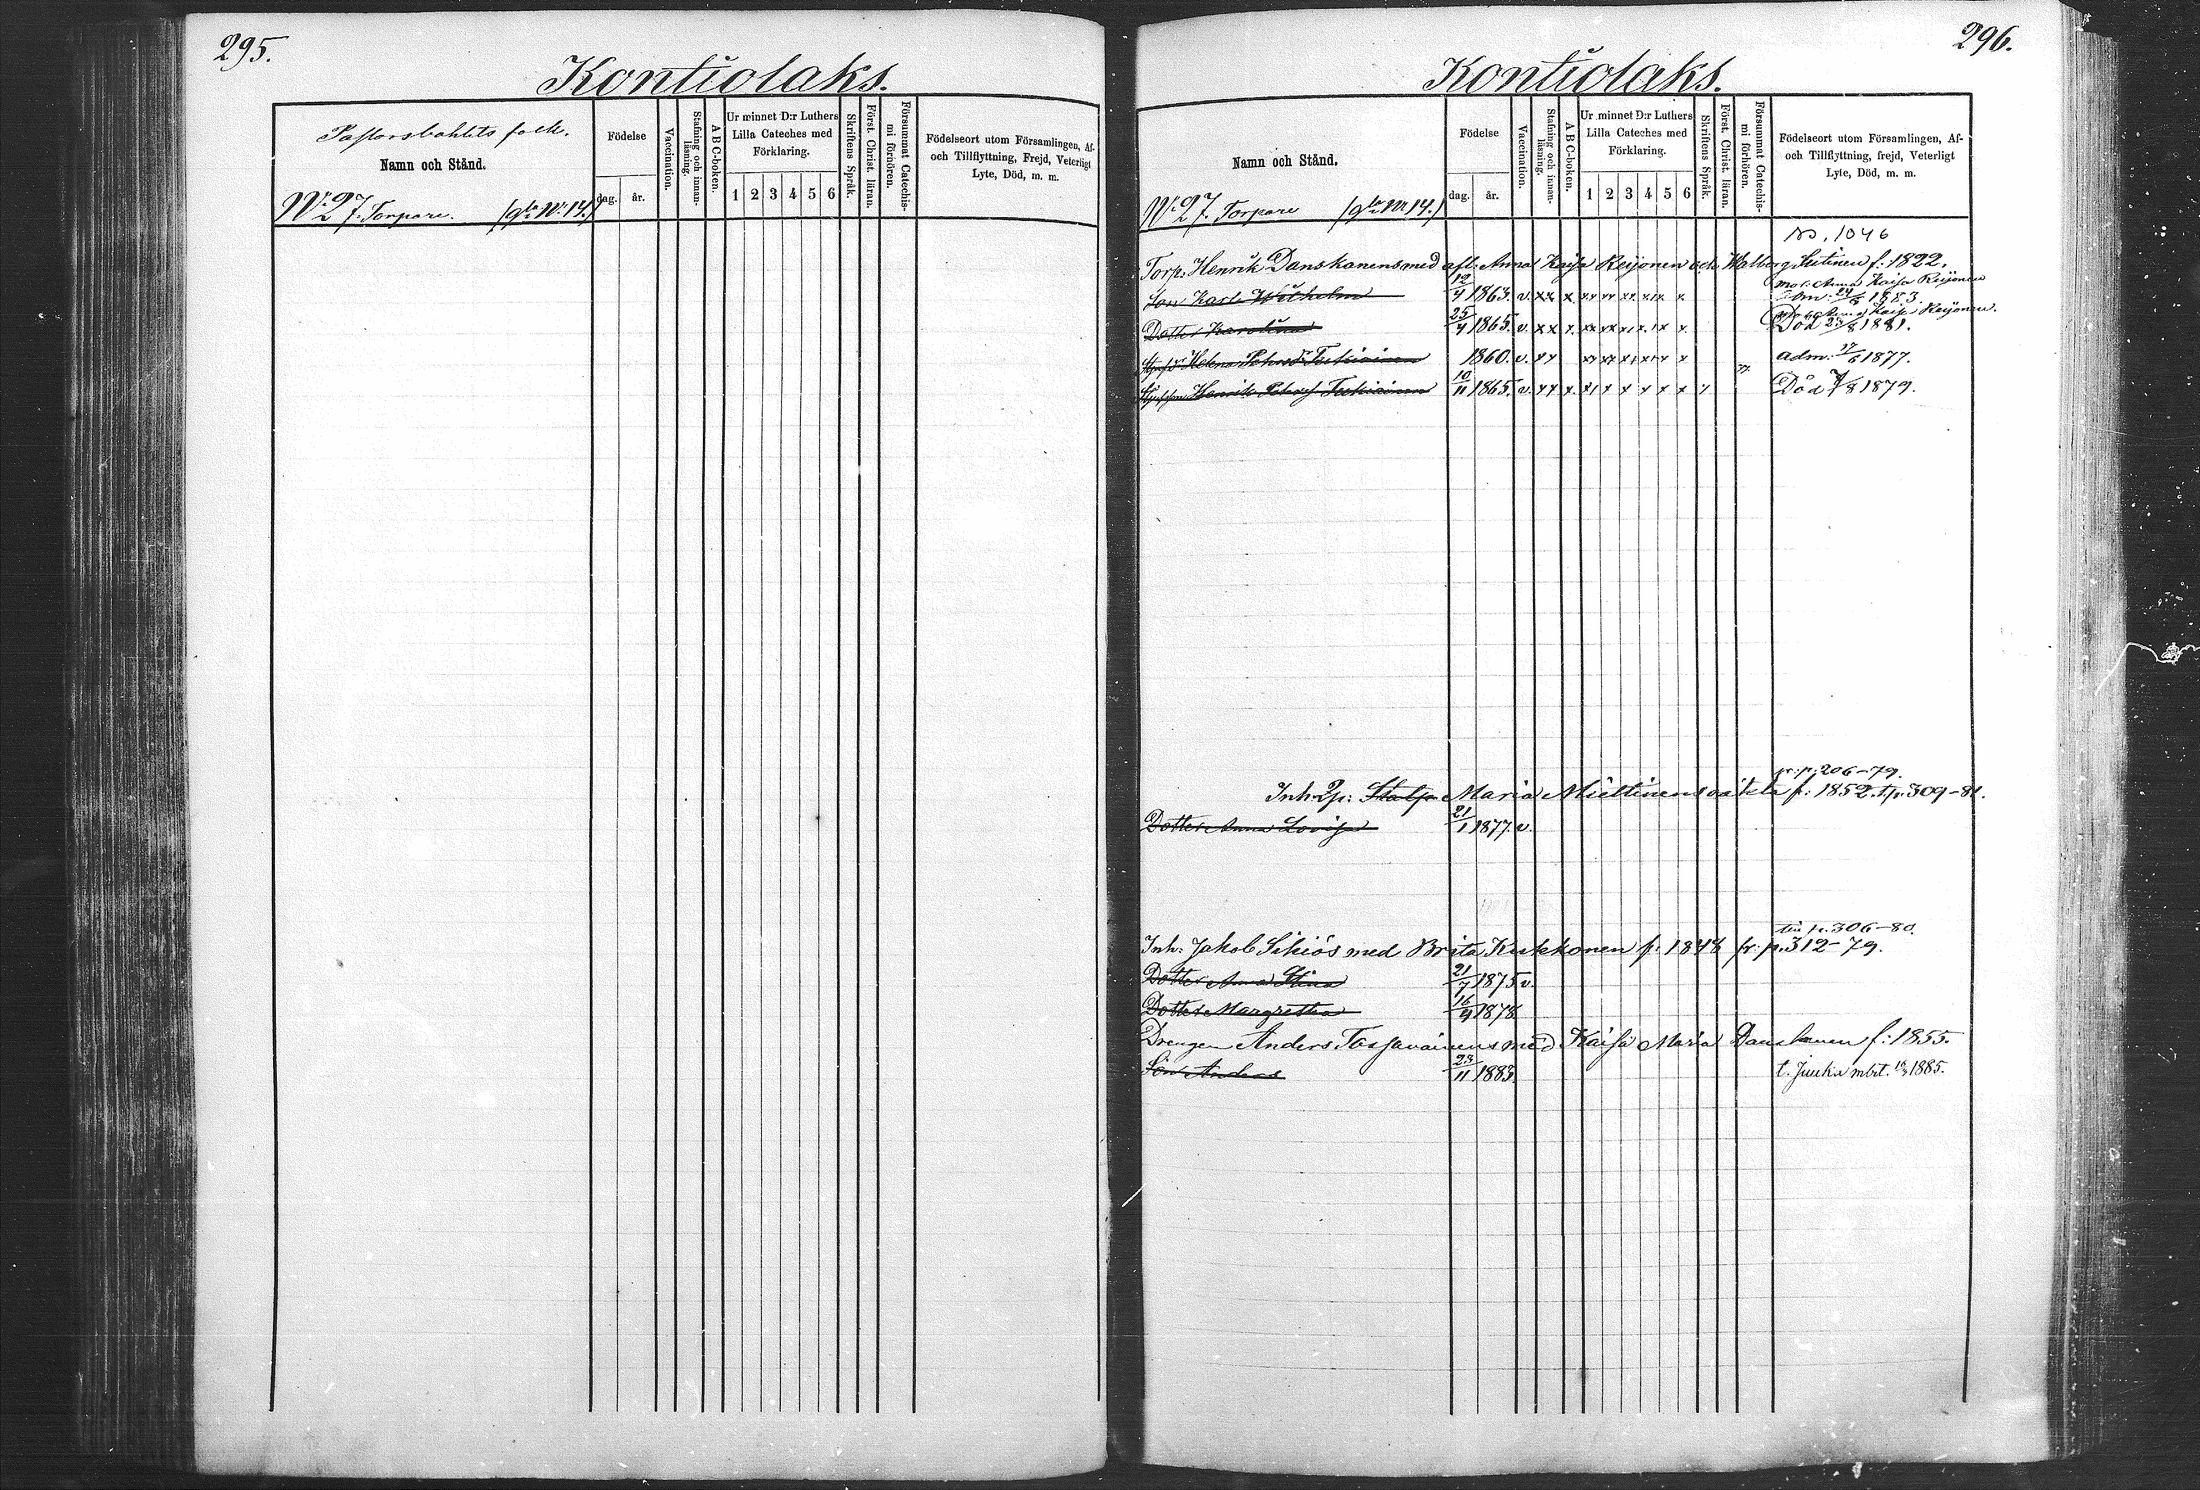 295.
Kontiolaks.
Pastorsbohlets folk.
Namn och Stånd.
Födelse
dag.
år.
Vaccination.
Stafning och innan-
läsning.
A B C-boken.
Ur minnet D:r Luthers
Lilla Cateches med
Förklaring.
1 2 3 4 5 6
Skriftens Språk.
Först. Christ. läran.
Försummat Catechis-
mi förhören.
Födelseort utom Församlingen, Af-
och Tillflyttning, Frejd, Veterligt
Lyte, Död, m. m.
N:o 27. Torpare. (gla N:o 14.)
296.
Kontiolaks.
Namn och Stånd.
Födelse
dag.
år.
Vaccination.
Stafning och innan-
läsning.
A B C-boken.
Ur minnet D:r Luthers
Lilla Cateches med
Förklaring.
1 2 3 4 5 6
Skriftens Språk.
Först. Christ. läran.
Försummat Catechis-
mi förhören.
Födelseort utom Församlingen, Af-
och Tillflyttning, frejd, Veterligt
Lyte, Död, m. m.
N:o 27. Torpare (gla N:o 14.)
1046
Torp. Henrik Danskanens med afl. Anna Kaisa Reijonen och Walborg f: 1822.
mod. Anna Kaisa Reijonen
Son Karl Wilhelm 12/4 1863. v. xx x xx xx xx xx x adm. 24/6 1883.
Anna Kaisa Reijonen.
Dotter Karolina 25/4 1865. v. xx x. Död 23/8 1881.
Helena 1860. v. xx adm: 17/6 1877.
Henrik 10/11 1865. v. xx x. Död 7/8 1879.
fr. p. 206-79.
Inh. Maria Miettinens f: 1852. t. p. 309-81.
Dotter Anna Lovisa 21/1 1877. v.
till p. 306-80.
Inh: Jakob Sikiös med Brita Kukkonen f: 1848 fr. p. 312-79.
Dotter Anna Stina 21/7 1875 v.
Dotter Margretha 16/4 1878.
Drengen Anders Tossavainens med Kaisa Maria Danskanen f: 1855.
Son Anders 23/11 1883. t. Juuka mbt. 1885.